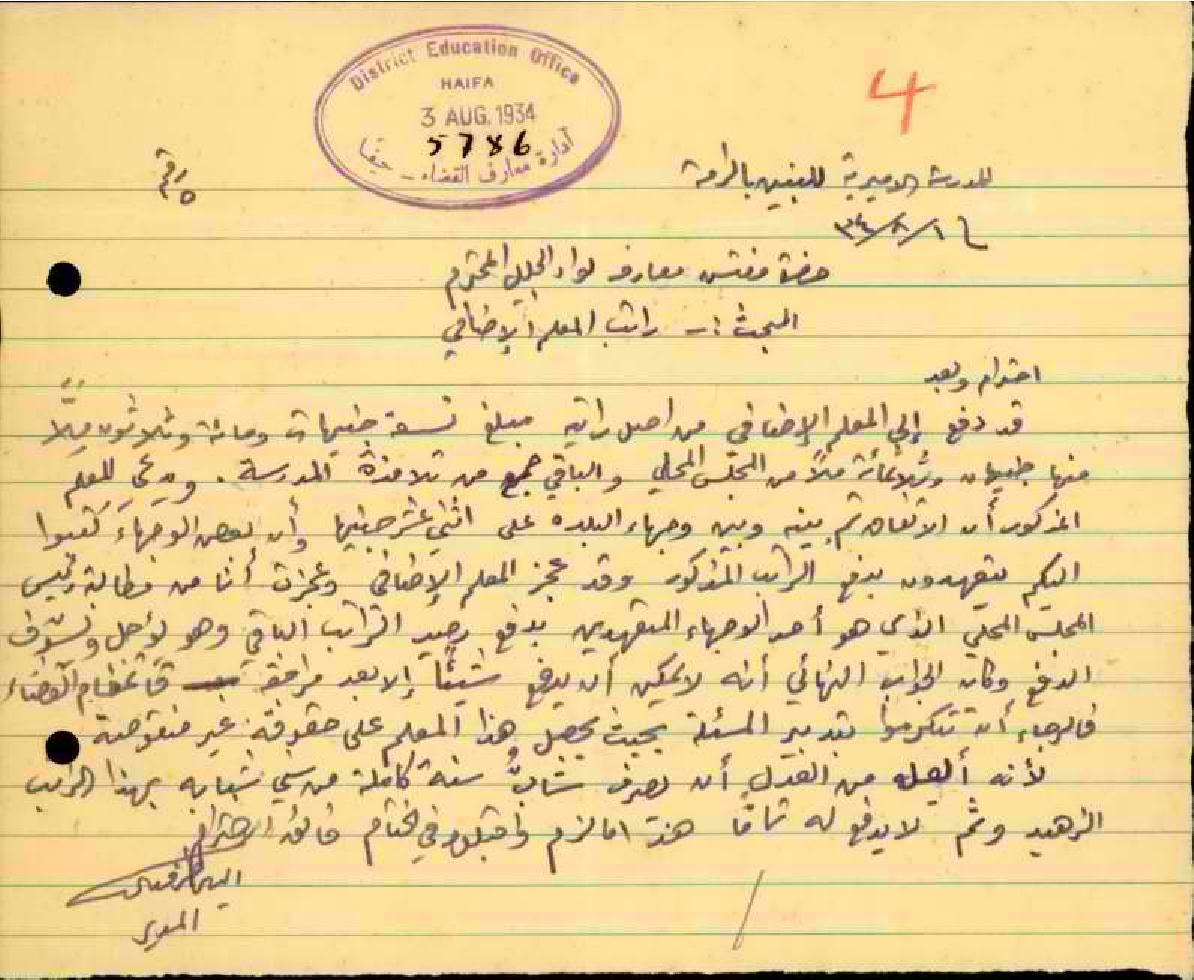 District Education Office
HAIFA
3 AUG. 1934
5786
ادارة معارف القضاء - حيفا
4
المدرسة الاميرية للبنين بالرامة
حضرة مفتش معارف لواء الجليل المحترم
البحث :- راتب المعلم الإضافي
احترام وبعد
قد دفع إلى المعلم الإضافي من اصل راتبه مبلغ تسعة جنيهات ومائة وثلاثون ملاً
منها جنيهان وثلاثمائة ملاً من المجلس المحلي والباقي جمع من تلامذة المدرسة. ويدعي المعلم
المذكور أن الاتفاق تم بينه وبين وجهاء البلدة على اثني عشر جنيها وأن بعض الوجهاء كتبوا
اليكم يتعهدون بدفع الراتب المذكور وقد عجز المعلم الإضافي وعجزت أنا من مطالبة رئيس
المجلس المحلي الذي هو أحد الوجهاء المتعهدين بدفع رصيد الراتب الباقي وهو يؤجل ويسوّف
الدفع وكان الجواب النهائي أنه لا يمكن أن يدفع شيئًا إلا بعد موافقة قائمقام القضاء
فالرجاء أن تتكرموا بتدبير المسئلة بحيث يحصل هذا المعلم على حقوقه غير منقوصة
لأنه أليس من العدل أن يصرف شابٌ سنة كاملة من سني شبابه بهذا الراتب
الزهيد وثم لا يدفع له تمامًا هذا ما لزم واقبلوا في الختام فائق الاحترام
المدير